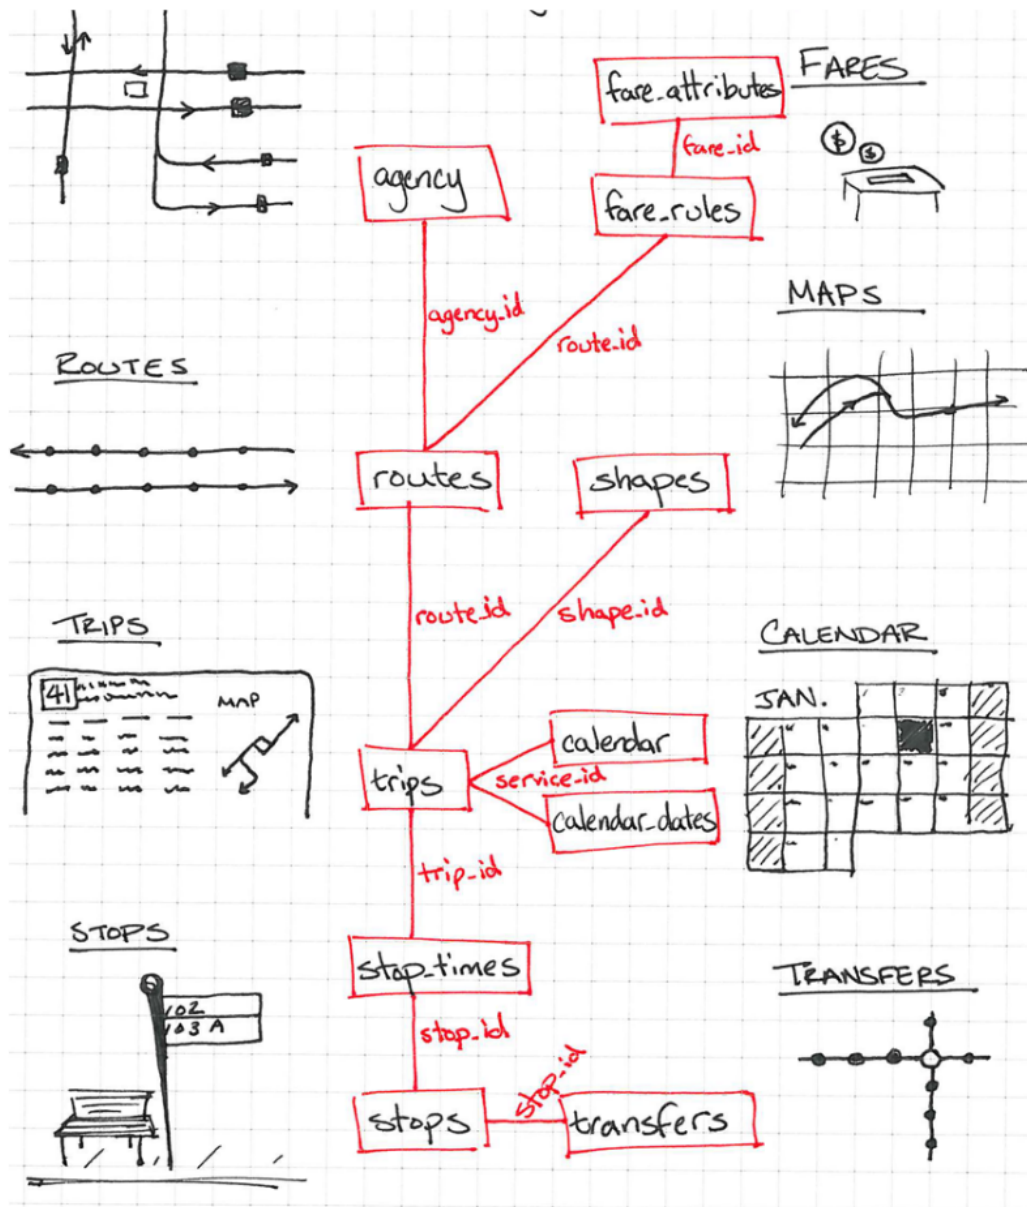 FARES
fare_attributes
fare_id
agency
fare_rules
MAPS
agency_id
route_id
ROUTES
routes
shapes
route_id
shape_id
TRIPS
CALENDAR
41
MAP
JAN.
calendar
service_id
trips
calendar_dates
trip_id
STOPS
stop_times
TRANSFERS
102
103 A
stop_id
stop_id
stops
transfers